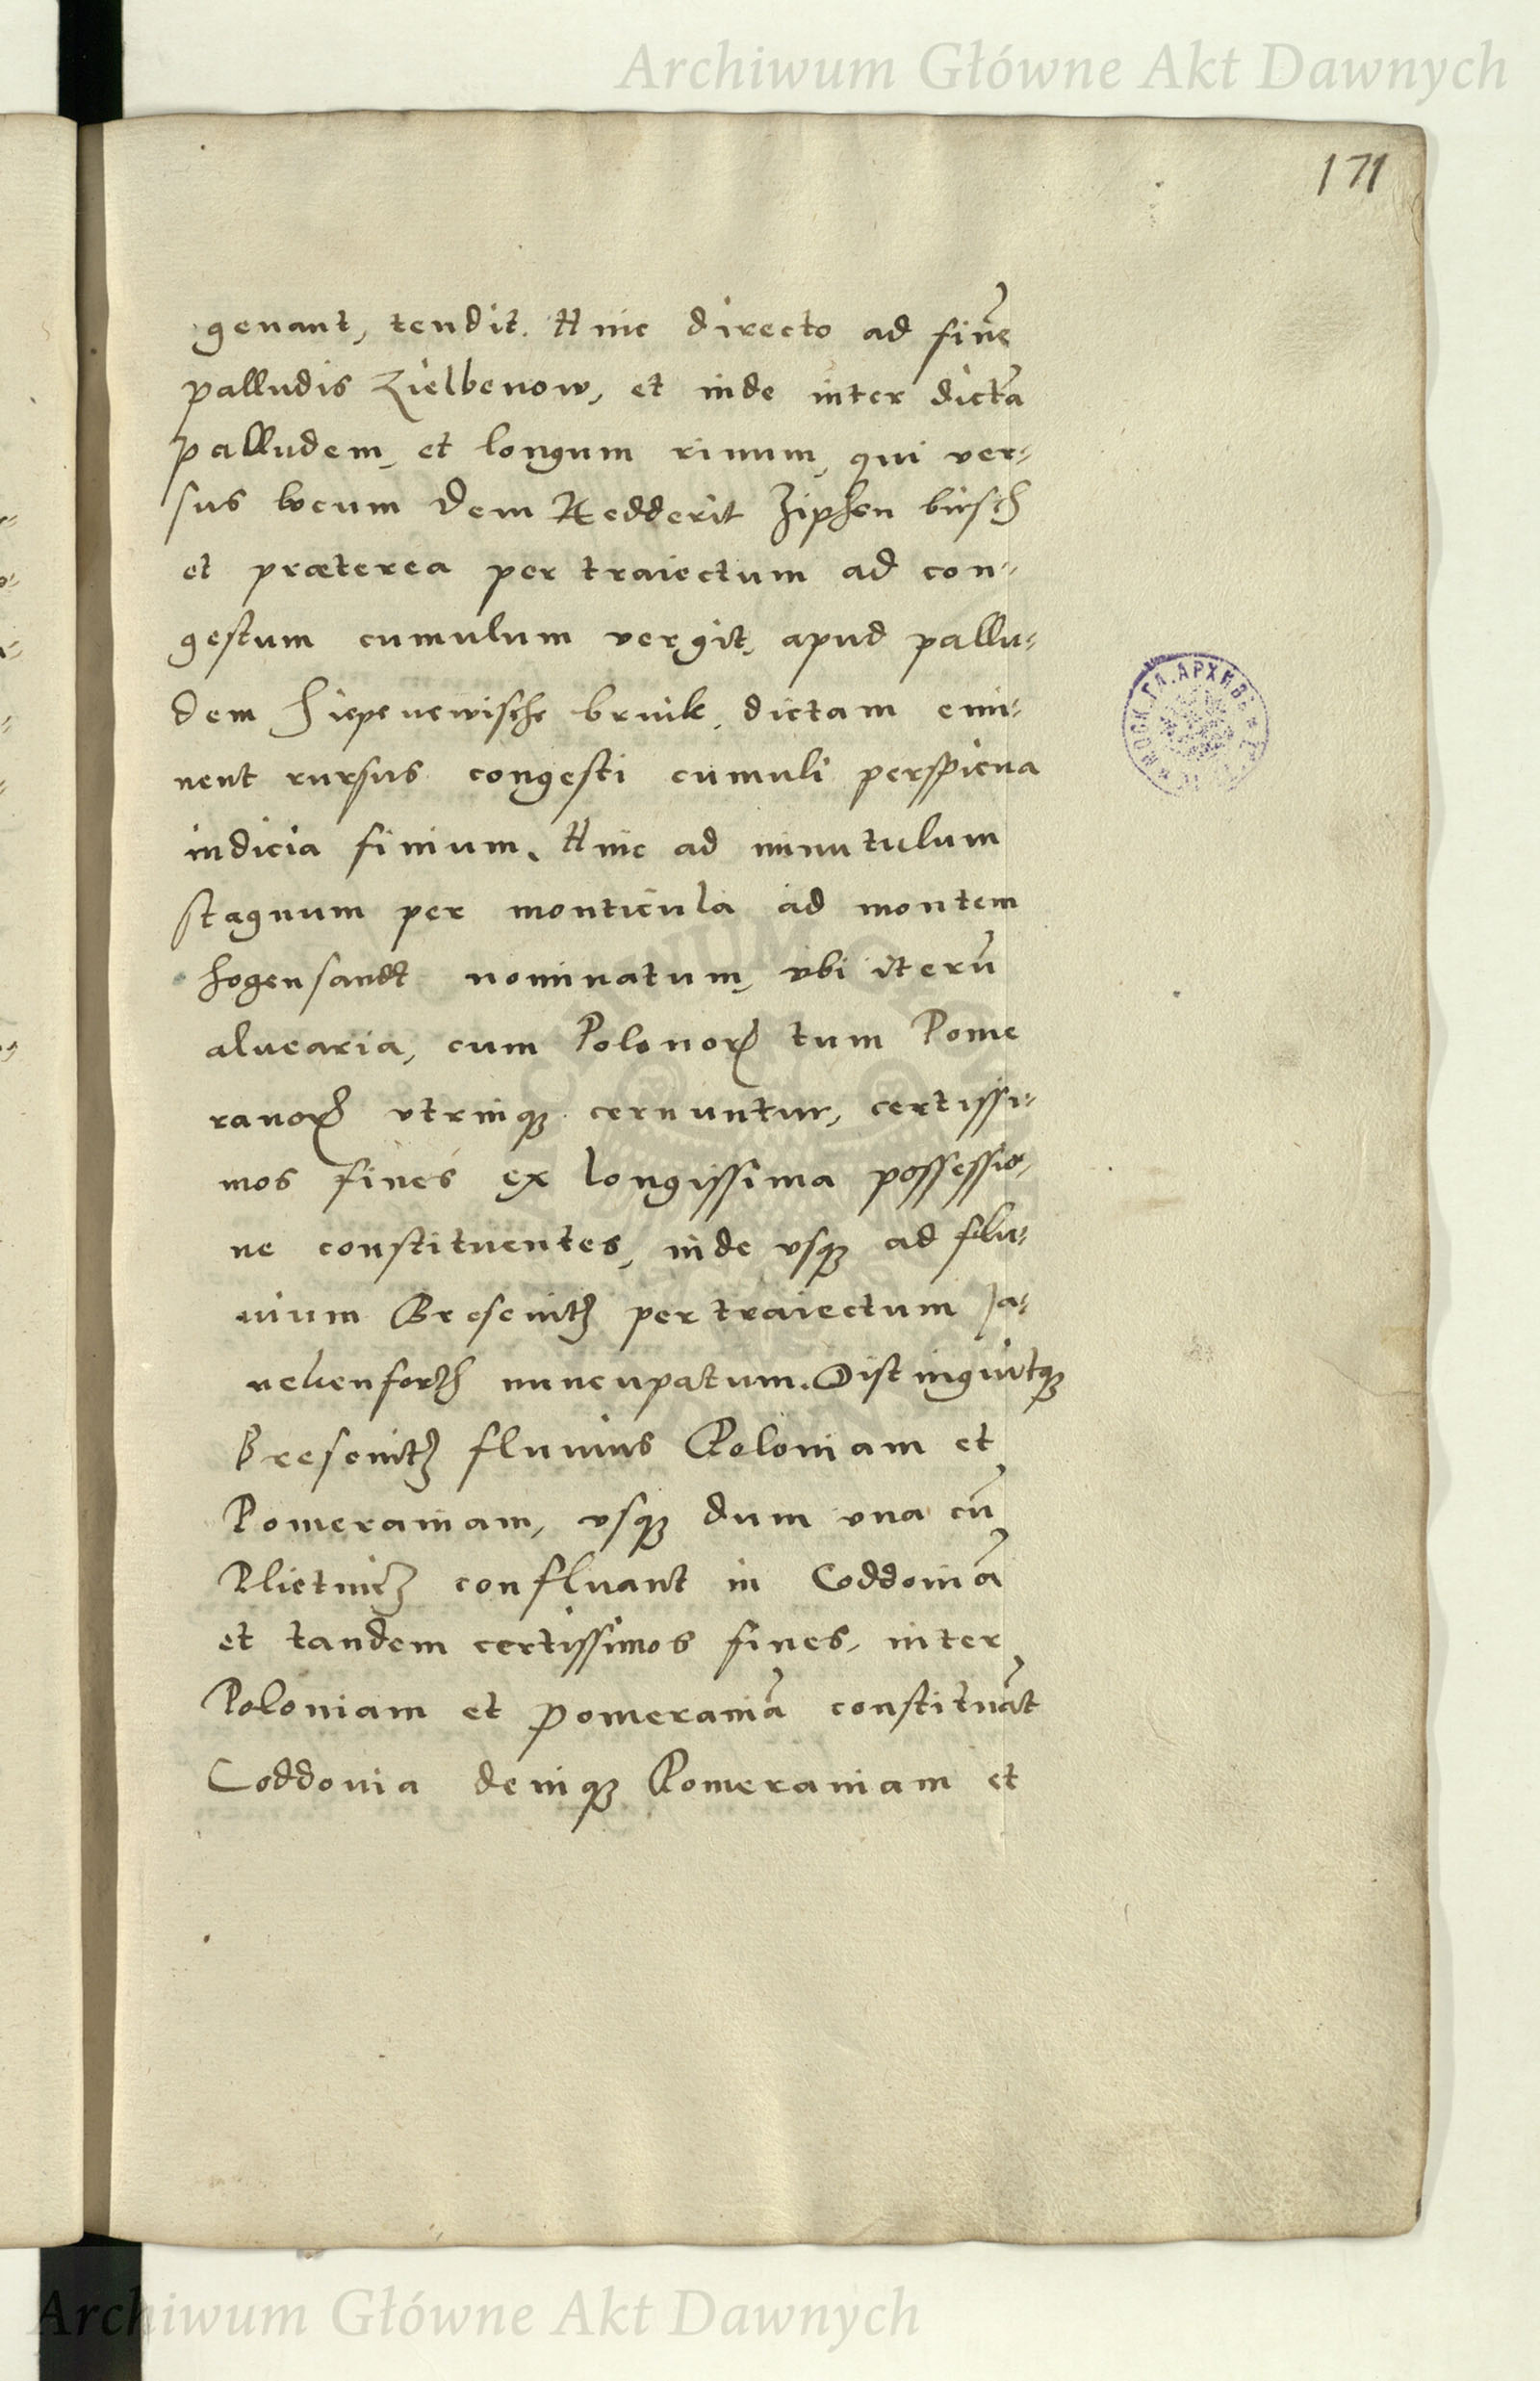 Archiwum Główne Akt Dawnych
171
genant, tendit. Hinc directo ad finē
palludis Zielbenow, et inde inter dictā
palludem, et longum rinum, qui ver-
sus locum dem Redderit Ziphen birsch
et præterea per traiectum ad con-
gestum cumulum vergit, apud pallu-
dem Hiepenewische bruik, dictam emi-
nent rursus congesti cumuli perspicua
indicia finium. Hinc ad minutulum
stagnum per monticula ad montem
hogensandt nominatum, vbi iterū
aluearia, cum Polonorꝝ tum Pome
ranorꝝ vtrinqꝫ cernuntur, certissi-
mos fines ex longissima possessio-
ne constituentes, inde vsqꝫ ad flu-
uium Bresenitz per traiectum Ja-
nekenforth nuncupatum. Distinguitqꝫ
Bresenitz fluuius Poloniam et
Pomeraniam, vsqꝫ dum vna cū
Plietnitz confluant in Coddoniā
et tandem certissimos fines, inter
Poloniam et Pomeraniā constituāt
Coddonia deniqꝫ Pomeraniam et
Archiwum Główne Akt Dawnych